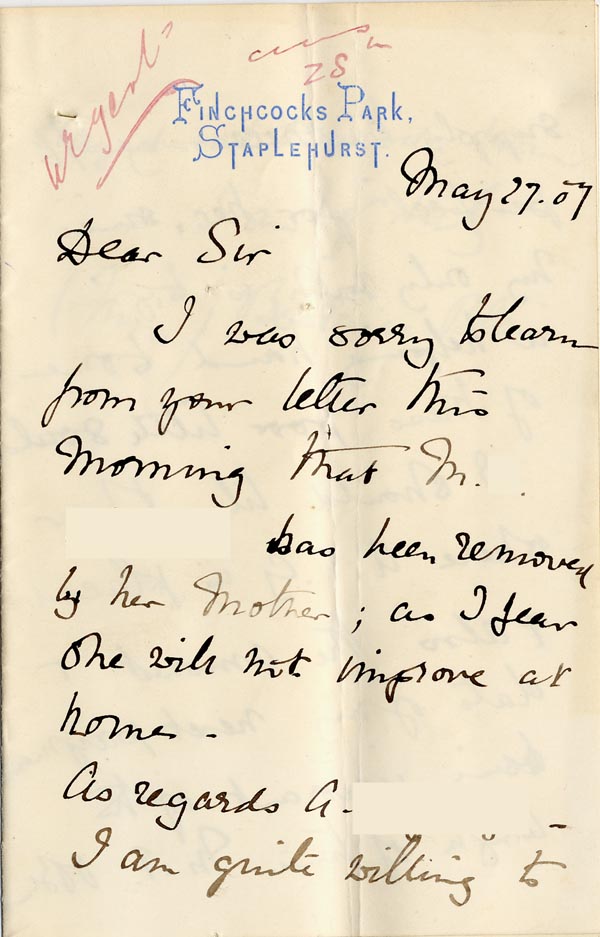 urgent
28
FINCHCOCKS PARK,
STAPLEHURST.
May 27. 07
Dear Sir
I was sorry to learn
from your letter this
morning that M.
has been removed
by her Mother ; as I fear
she will not improve at
home -
As regards A.
I am quite willing to